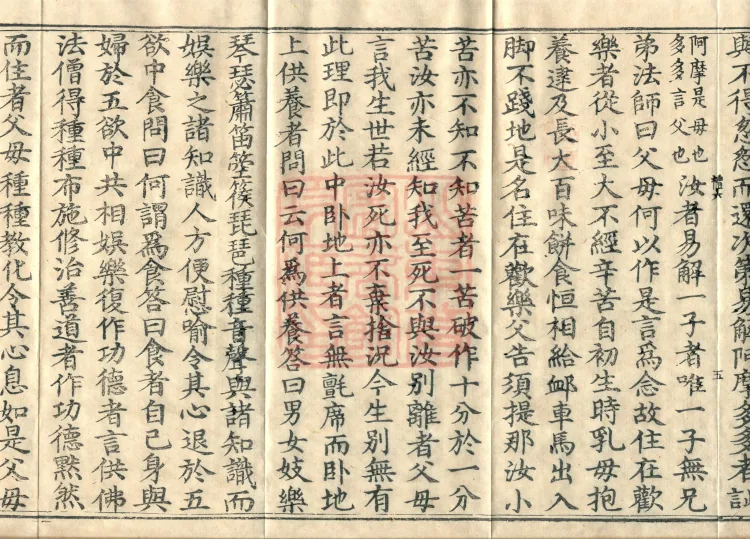 與不得怱怱而還次第易解阿摩多多者訓
阿摩是母也
多多言父也
汝者易解一子者唯一子無兄
弟法師曰父母何以作是言爲念故住在歡
樂者從小至大不經辛苦自初生時乳母抱
養逮及長大百味餅食恒相給卹車馬出入
脚不踐地是名住在歡樂父言須提那汝小
苦亦不知不知苦者一苦破作十分於一分
苦汝亦未經知我至死不與汝別離者父母
言我生世若汝死亦不棄捨況今生別無有
此理即於此中卧地上者言無氈席而卧地
上供養者問曰云何爲供養答曰男女妓樂
琴瑟簫笛箜篌琵琶種種音聲與諸知識而
娛樂之諸知識人方便慰喻令其心退於五
欲中食問曰何謂爲食答曰食者自己身與
婦於五欲中共相娛樂復作功德者言供佛
法僧得種種布施修治善道者作功德默然
而住者父母種種教化令其心息如是父母
五